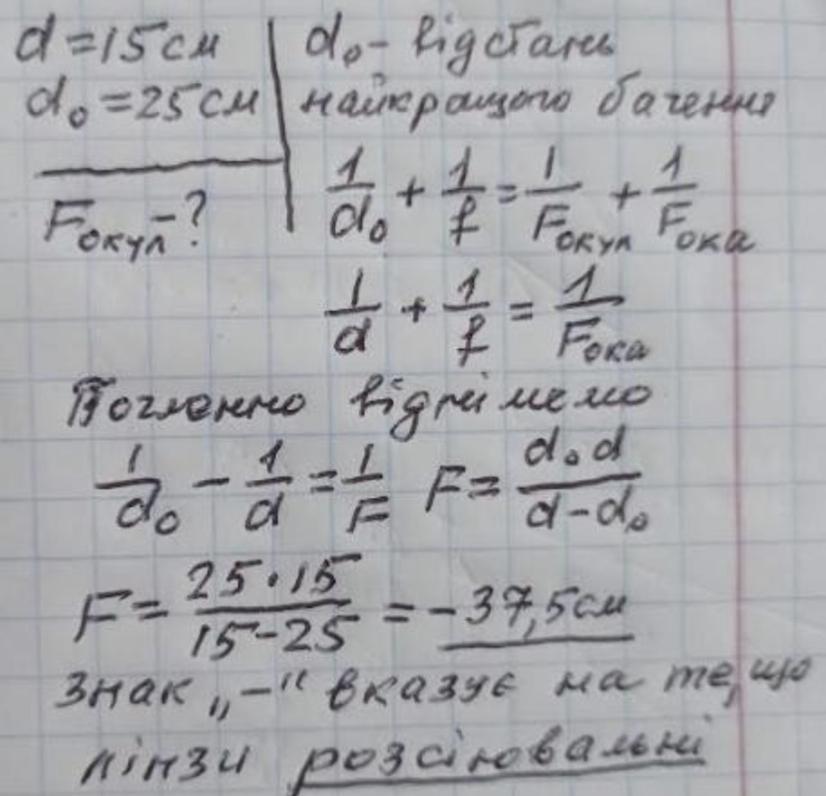 d = 15 см
d₀ = 25 см
Fокул - ?
d₀ - відстань
найкращого бачення
1/d₀ + 1/f = 1/Fокул + 1/Fока
1/d + 1/f = 1/Fока
Почленно віднімемо
1/d₀ - 1/d = 1/F F = d₀d/(d - d₀)
F = 25·15/(15-25) = -37,5 см
Знак „-“ вказує на те, що
лінзи розсіювальні